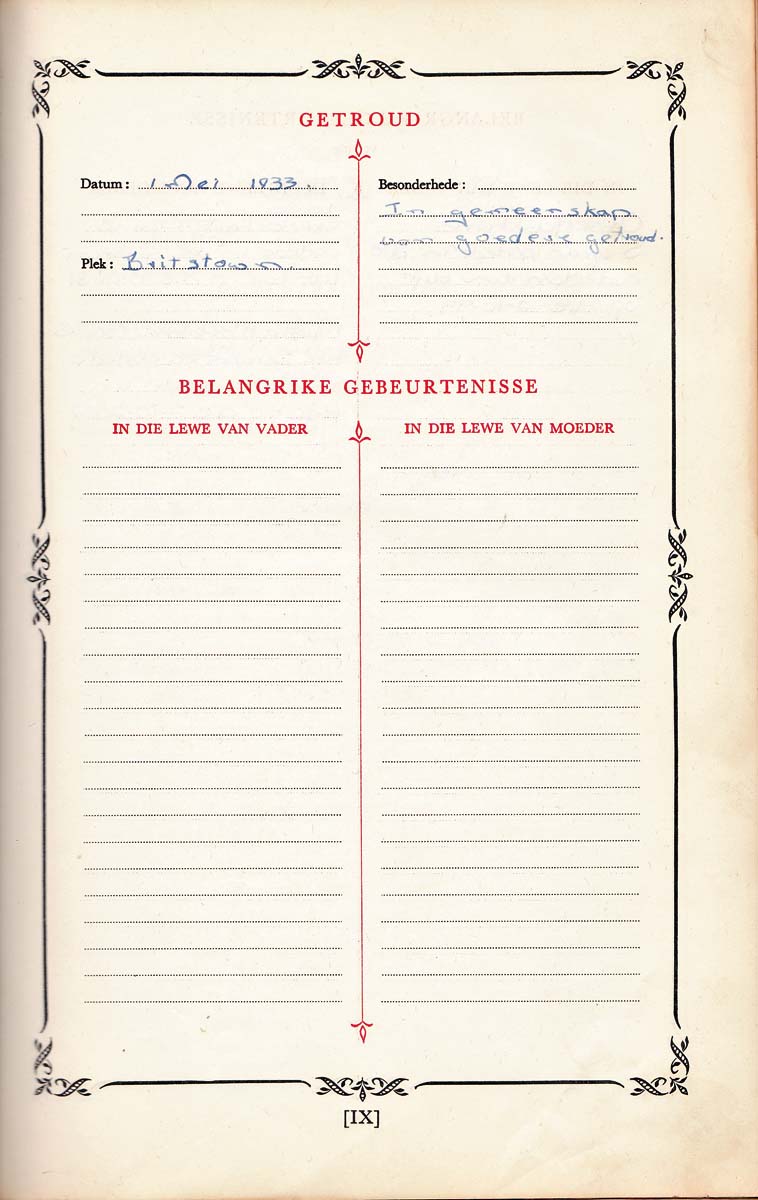 GETROUD
Datum: 1 Mei 1933.
Plek: Britstown.
Besonderhede:
In gemeenskap
van goedere getroud.
BELANGRIKE GEBEURTENISSE
IN DIE LEWE VAN VADER
IN DIE LEWE VAN MOEDER
[IX]